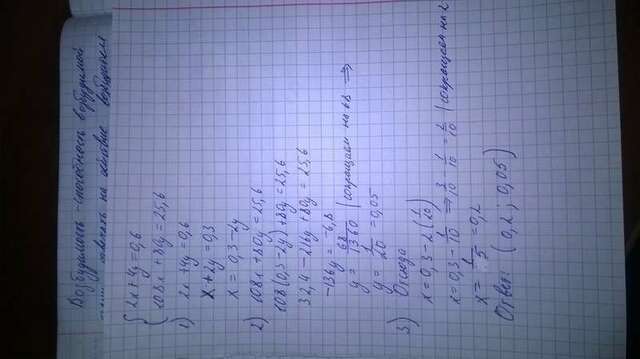 Возбудимость - способность возбудимой
отвечать на действие
{ 2x + 4y = 0,6
108x + 80y = 25,6
1) 2x + 4y = 0,6
x + 2y = 0,3
x = 0,3 - 2y
2) 108x + 80y = 25,6
108(0,3 - 2y) + 80y = 25,6
32,4 - 216y + 80y = 25,6
-136y = -6,8
y = 68/1360 | сокращаем на 68 ⇒
y = 1/20 = 0,05
3) Отсюда
x = 0,3 - 2(1/20)
x = 0,3 - 1/10 ⇒ 3/10 - 1/10 = 2/10 | сокращаем на 2
x = 1/5 = 0,2
Ответ: (0,2 ; 0,05)